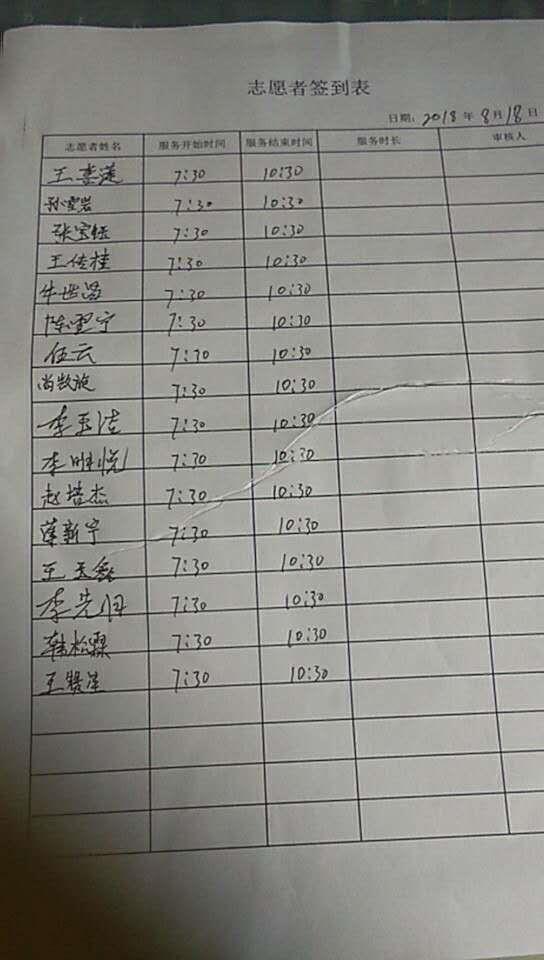 志愿者签到表
日期: 2018 年 8 月 18 日
志愿者姓名 服务开始时间 服务结束时间 服务时长 审核人
王喜莲 7:30 10:30
孙雪岩 7:30 10:30
张宝钰 7:30 10:30
王传桂 7:30 10:30
牛世昌 7:30 10:30
陈雪宁 7:30 10:30
任云 7:30 10:30
尚数施 7:30 10:30
李玉洁 7:30 10:30
李明悦 7:30 10:30
赵培杰 7:30 10:30
蓬新宁 7:30 10:30
王玉磊 7:30 10:30
李先旧 7:30 10:30
韩松霖 7:30 10:30
王 7:30 10:30